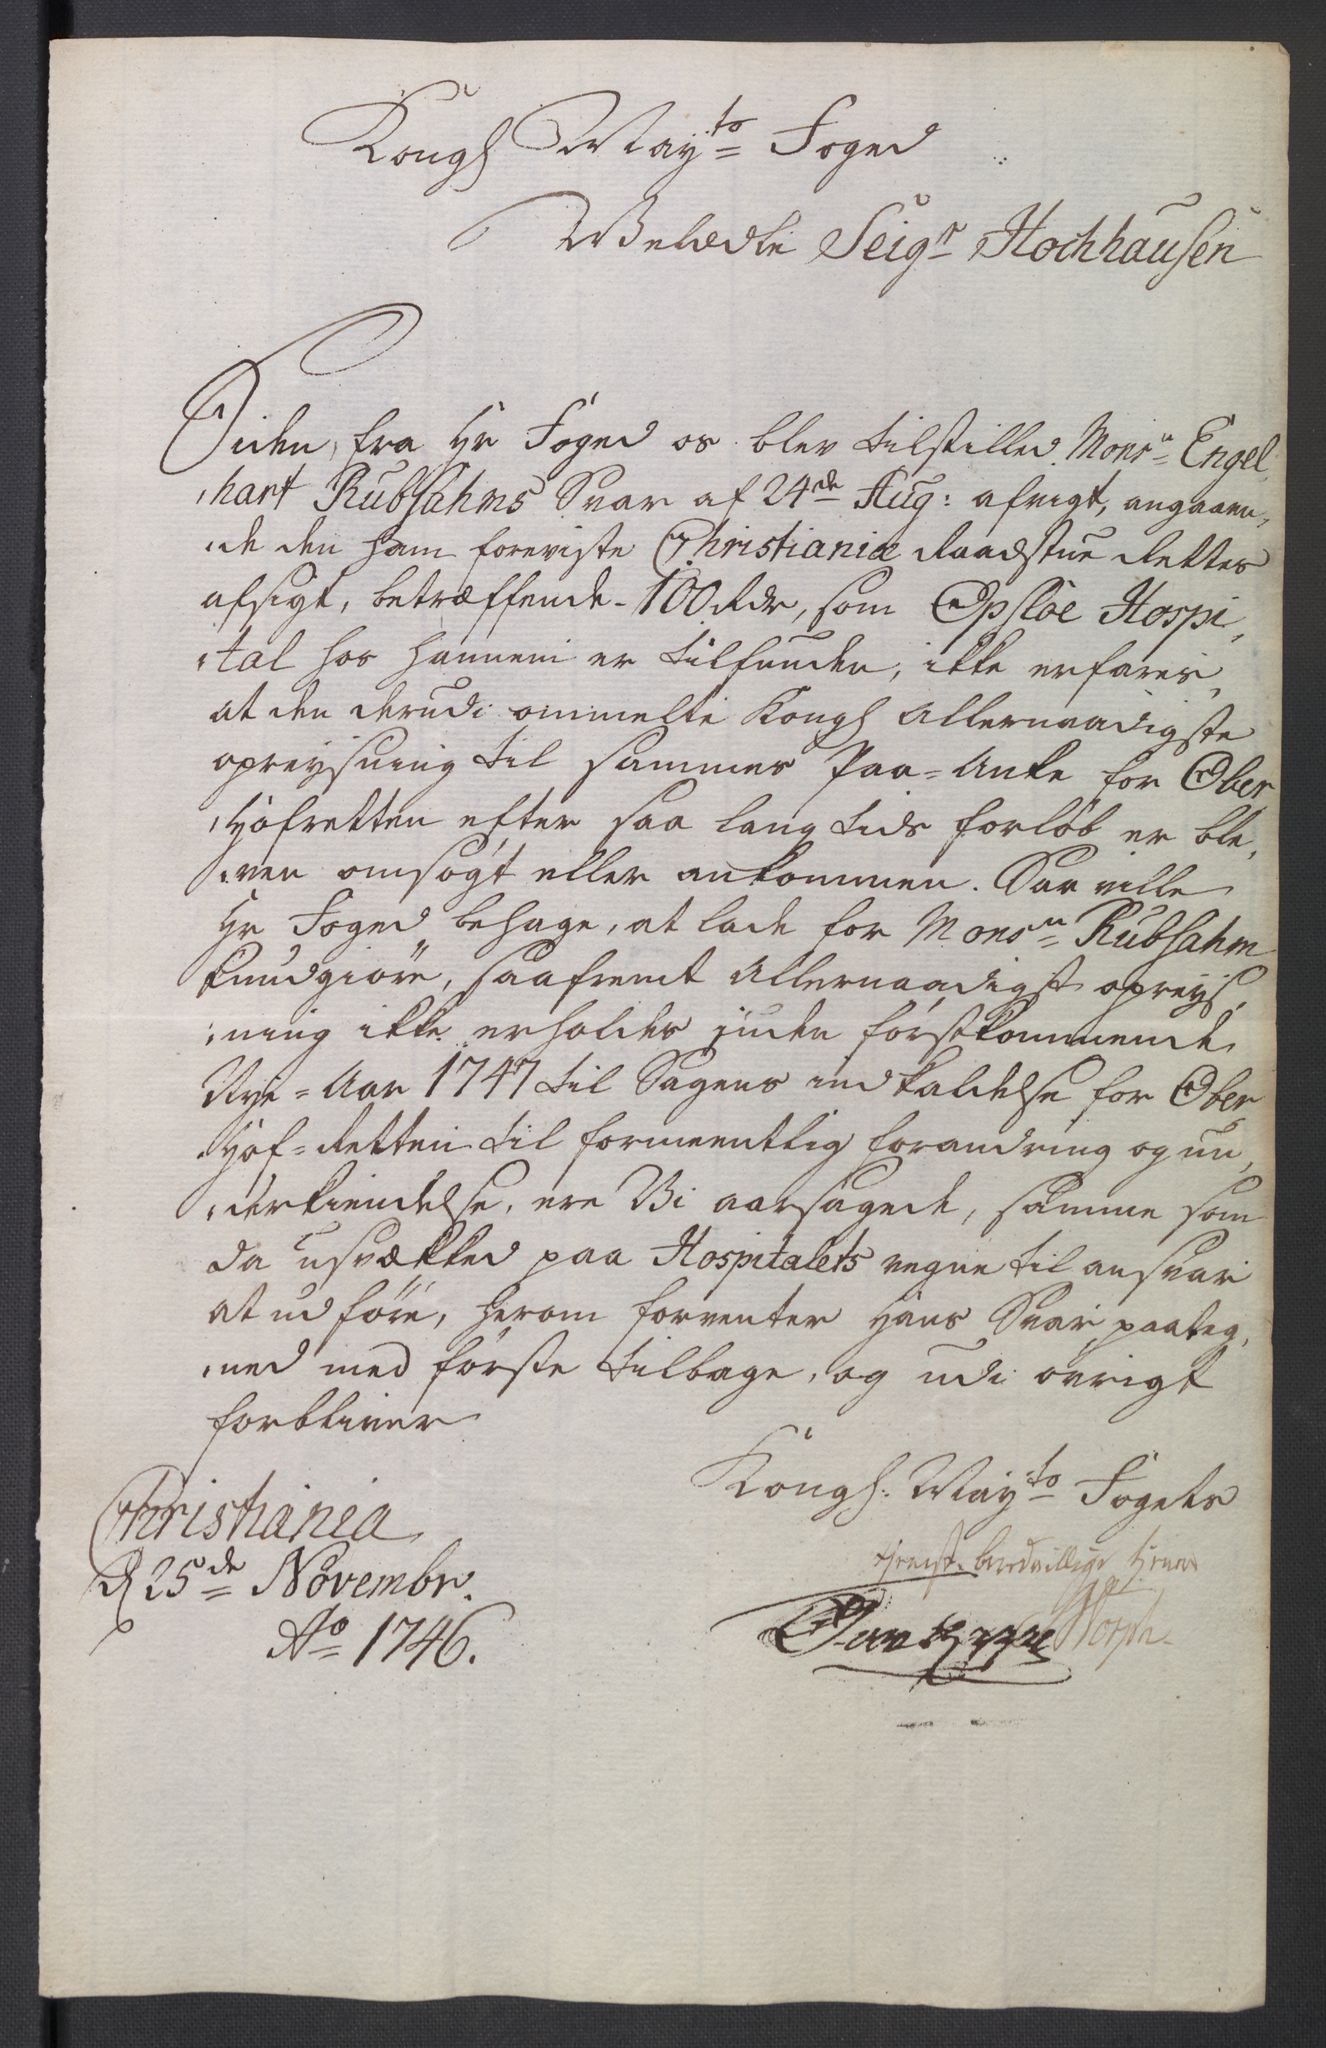 Kongl Mayts Foged
Velædle Seigr Hochhausen
Siden, fra Hr Foged os blev tilstilled Monsr Engel,
,hart Rubsahms Svar af 24de Aug: afvigt, angaaen,
,de den ham foreviste Christianiæ Raadstue Rettes
afsigt, betræffende 100 Rdr, som Opsloe Hospi,
,tal hos hannem er tilfunden, ikke erfares,
at den derudi ommelte Kongl Allernaadigste
opreysning til sammes Paa-Anke for Ober
,Hofretten efter saa lang tids forløb er ble,
,ven omsøgt eller ankommen. Saa ville
Hr Foged behage, at lade for Monsr Rubsahm
kundgiøre, saafremt Allernaadigst opreys,
,ning ikke erholdes inden førstkommende
Nye-Aar 1747 til Sagens indkaldelse for Ober
,Hof-Retten til formeentlig forandring og un,
,derkiendelse, ere Vi aarsagede, samme som
da usvækked paa Hospitalets vegne til ansvar
at udføre, herom forventer Hans Svar paateg,
,ned med første tilbage, og udi øvrigt
forbliver
Kongl: Mayts Fogets
Christiania
d 25de Novembr.
Ao 1746.
tienst beredvillige tienere